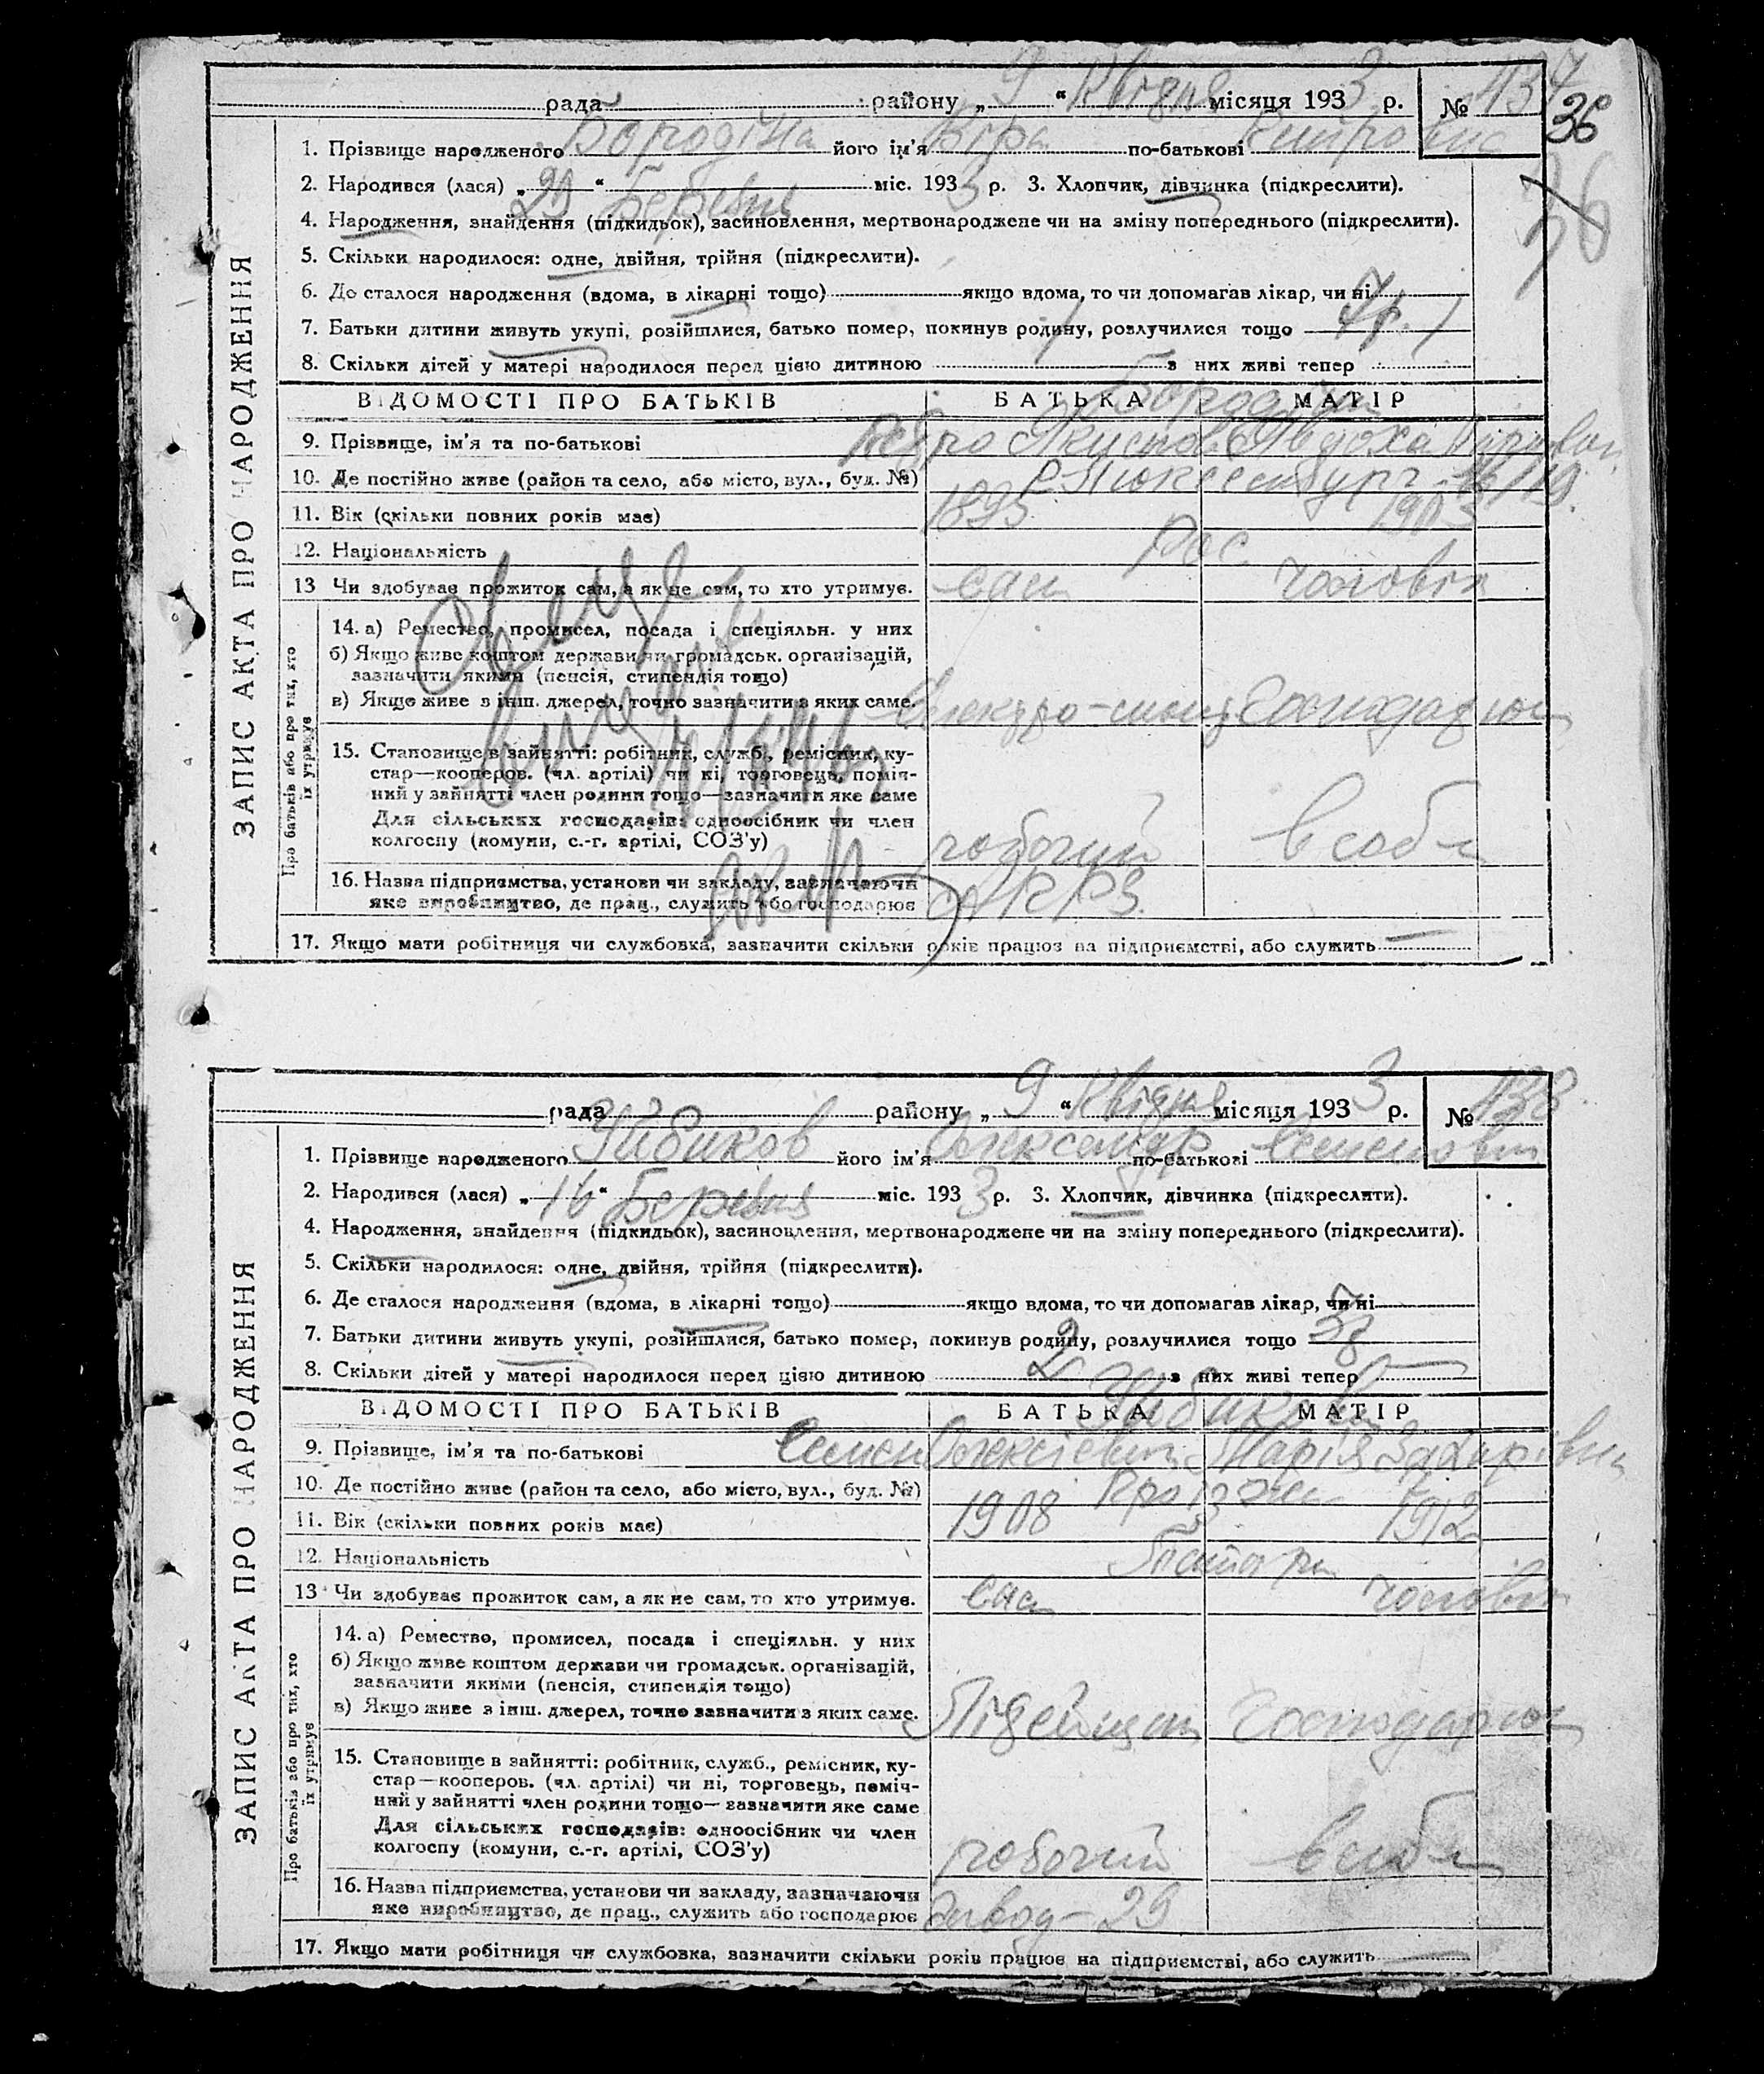 рада району „ 9 “ Квітня місяця 1933 р. № 437
36
1. Прізвище народженого Бородіна його ім'я Віра по-батькові
36
2. Народився (лася) „ “ Березня міс. 1933 р. 3. Хлопчик, дівчинка (підкреслити).
4. Народження, знайдення (підкидьок), засиновлення, мертвонароджене чи на зміну попереднього (підкреслити).
5. Скільки народилося: одне, двійня, трійня (підкреслити).
6. Де сталося народження (вдома, в лікарні тощо) якщо вдома, то чи допомагав лікар, чи ні
7. Батьки дитини живуть укупі, розійшлися, батько помер, покинув родину, розлучилися тощо 7р.
8. Скільки дітей у матері народилося перед цією дитиною 1 з них живі тепер 1
ВІДОМОСТІ ПРО БАТЬКІВ БАТЬКА МАТІР
9. Прізвище, ім'я та по-батькові
10. Де постійно живе (район та село, або місто, вул., буд. №) Р. Люксембург 16/19
11. Вік (скільки повних років має) 1895 1903
12. Національність Рос
13 Чи здобуває прожиток сам, а як не сам, то хто утримує. сам чоловік
14. а) Ремество, промисел, посада і спеціяльн. у них
б) Якщо живе коштом держави чи громадськ. організацій,
зазначити якими (пенсія, стипендія тощо)
в) Якщо живе з інш. джерел, точно зазначити з яких саме. Господарює
15. Становище в зайнятті: робітник, служб., ремісник, ку-
стар—кооперов. (чл. артілі) чи ні, торговець, поміч-
ний у зайнятті член родини тощо—зазначити яке саме
Для сільських господарів: одноосібник чи член
колгоспу (комуни, с.-г. артілі, СОЗ'у) робочий в себе
16. Назва підприємства, установи чи закладу, зазначаючи
яке виробництво, де прац., служить або господарює
17. Якщо мати робітниця чи службовка, зазначити скільки років працює на підприємстві, або служить —
ЗАПИС АКТА ПРО НАРОДЖЕННЯ
Про батьків або про тих, хто
їх утримує
рада району „ 9 “ Квітня місяця 1933 р. № 438
1. Прізвище народженого Зибиков його ім'я Олександр по-батькові Семенович
2. Народився (лася) „ 16 “ Березня міс. 1933 р. 3. Хлопчик, дівчинка (підкреслити).
4. Народження, знайдення (підкидьок), засиновлення, мертвонароджене чи на зміну попереднього (підкреслити).
5. Скільки народилося: одне, двійня, трійня (підкреслити).
6. Де сталося народження (вдома, в лікарні тощо) якщо вдома, то чи допомагав лікар, чи ні
7. Батьки дитини живуть укупі, розійшлися, батько помер, покинув родину, розлучилися тощо
8. Скільки дітей у матері народилося перед цією дитиною 2 з них живі тепер —
ВІДОМОСТІ ПРО БАТЬКІВ БАТЬКА МАТІР
9. Прізвище, ім'я та по-батькові Семен Олексієвич Марія Захарівна
10. Де постійно живе (район та село, або місто, вул., буд. №)
11. Вік (скільки повних років має) 1908 1912
12. Національність
13 Чи здобуває прожиток сам, а як не сам, то хто утримує. сам чоловік
14. а) Ремество, промисел, посада і спеціяльн. у них
б) Якщо живе коштом держави чи громадськ. організацій,
зазначити якими (пенсія, стипендія тощо)
в) Якщо живе з інш. джерел, точно зазначити з яких саме. Господарює
15. Становище в зайнятті: робітник, служб., ремісник, ку-
стар—кооперов. (чл. артілі) чи ні, торговець, поміч-
ний у зайнятті член родини тощо—зазначити яке саме
Для сільських господарів: одноосібник чи член
колгоспу (комуни, с.-г. артілі, СОЗ'у) робочий в себе
16. Назва підприємства, установи чи закладу, зазначаючи
яке виробництво, де прац., служить або господарює завод-29
17. Якщо мати робітниця чи службовка, зазначити скільки років працює на підприємстві, або служить —
ЗАПИС АКТА ПРО НАРОДЖЕННЯ
Про батьків або про тих, хто
їх утримує